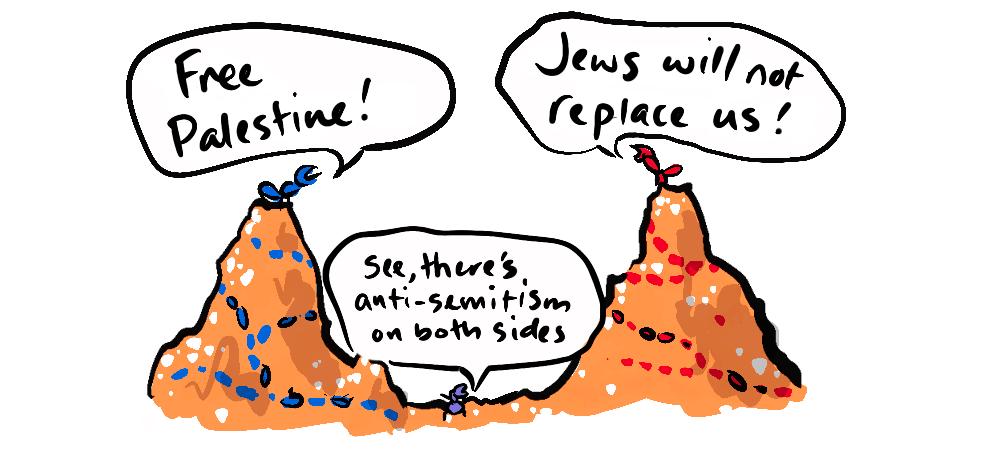 Free
Palestine!
Jews will not
replace us!
See, there's
anti-semitism
on both sides